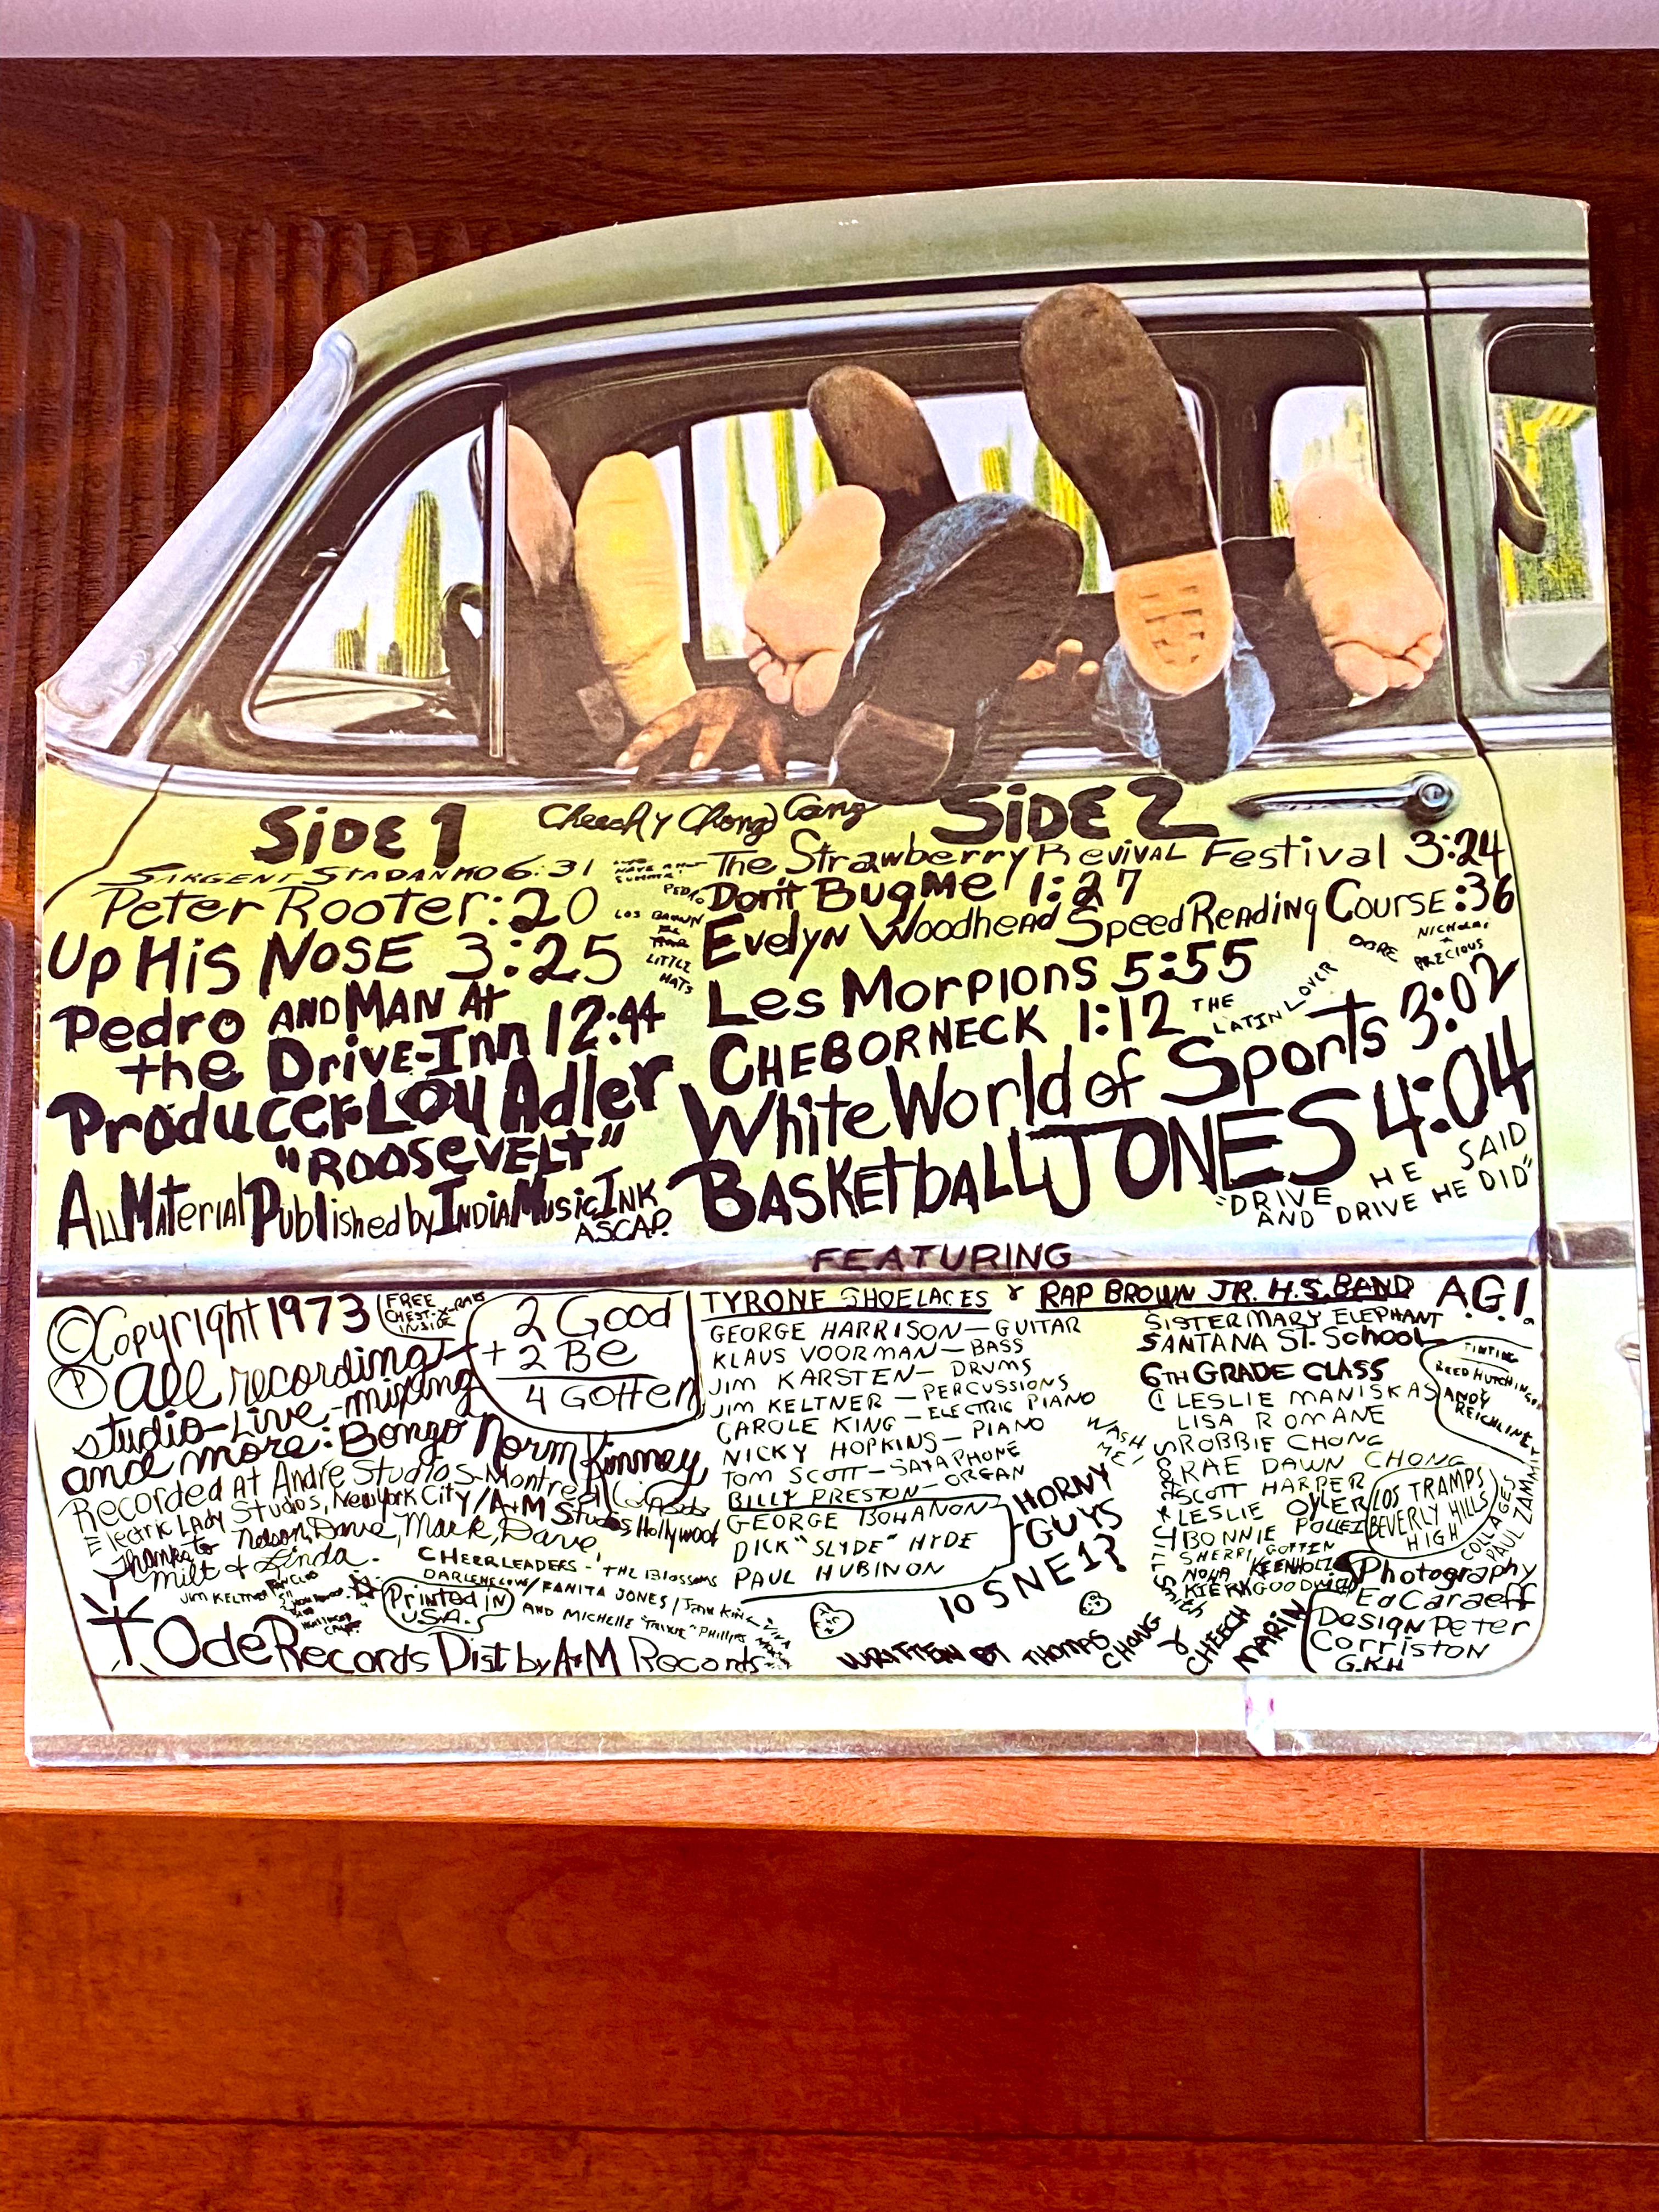 SiDE 1
SARGENT STADANKO 6:31
Peter Rooter :20
Up His Nose 3:25
Pedro AND MAN At
the Drive-Inn 12:44
Producer Lou Adler
"ROOSEVELT"
All Material Published by India Music Ink
A.S.C.A.P.
Cheech y Chong Gang
PEDRO
LOS
LITTLE
HATS
SiDE 2
The Strawberry Revival Festival 3:24
Don't Bug Me 1:27
Evelyn Woodhead Speed Reading Course :36
Les Morpions 5:55
CHEBORNECK 1:12
THE
LATIN LOVER
NICHOLAS
PRECIOUS
White World of Sports 3:02
BASKETbALL JONES 4:04
"DRIVE HE SAID
AND DRIVE HE DID"
FEATURING
© Copyright 1973
FREE
CHEST-X-RAYS
INSIDE
2 Good
+ 2 Be
4 Gotten
Ⓟ All recording
studio-Live-mixing
and more: Bongo Norm Kinney
Recorded At Andre Studios-Montreal
Electric Lady Studios, New York City/A+M Studios Hollywood
Thanks to Nelson, Dave, Mark, Dave,
Milt & Linda.
JIM KELTNER
CHEERLEADERS - THE BLossoms
DARLENE LOVE/FANITA JONES/JEAN KING
AND MICHELLE "TRIXIE" PHILLIPS
Printed IN
U.S.A.
Ode Records Dist by A+M Records
TYRONE SHOELACES & RAP BROWN JR. H.S. BAND
GEORGE HARRISON—GUITAR
KLAUS VOORMAN—BASS
JIM KARSTEN—DRUMS
JIM KELTNER—PERCUSSIONS
CAROLE KING—ELECTRIC PIANO
NICKY HOPKINS—PIANO
TOM SCOTT—SAXAPHONE
BILLY PRESTON—ORGAN
GEORGE BOHANON
DICK "SLYDE" HYDE
PAUL HUBINON
HORNY
GUYS
10 SNE1?
WASH
ME!
WRITTEN BY THOMAS CHONG & CHEECH MARIN
A.G.I.
SISTER MARY ELEPHANT
SANTANA ST. School
6TH GRADE CLASS
LESLIE MANISKAS
LISA ROMANE
ROBBIE CHONG
RAE DAWN CHONG
SCOTT HARPER
LESLIE OYLER
BONNIE POLLEI
SHERRI GOTTEN
NOHA KEENHOLZ
KIERK GOODWIN
TINTING
REED HUTCHINSON
ANDY
REICHLINE
LOS TRAMPS
BEVERLY HILLS
HIGH
COLLAGES
PAUL ZAMMIT
Photography
Ed Caraeff
Design Peter
Corriston
G.K.H